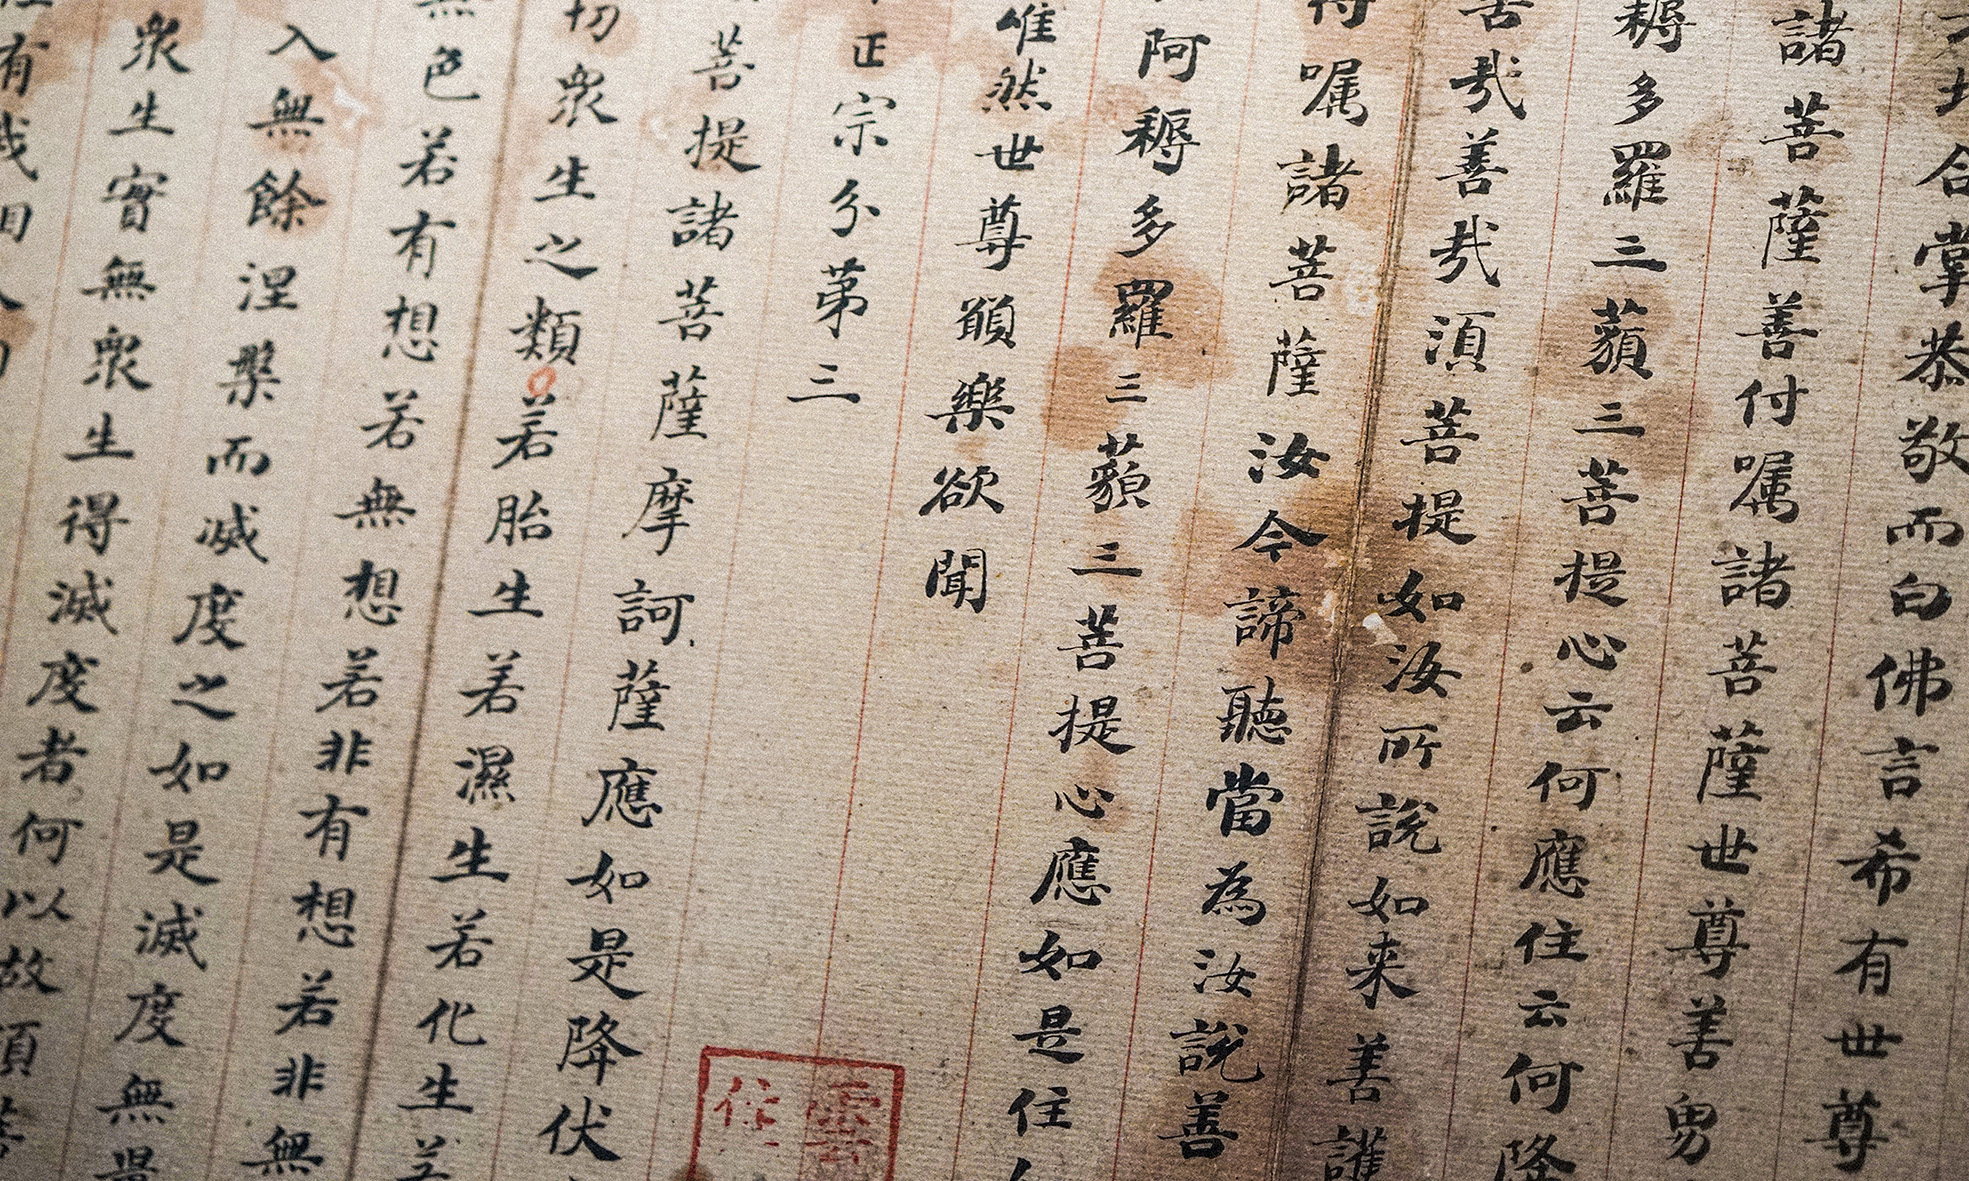 合掌恭敬而白佛言希有世尊
諸菩薩善付嘱諸菩薩世尊善男
耨多羅三藐三菩提心云何應住云何降
哉善哉湏菩提如汝所說如来善護
嘱諸菩薩汝今諦聽當為汝說善
阿耨多羅三藐三菩提心應如是住
唯然世尊願樂欲聞
正宗分第三
菩提諸菩薩摩訶薩應如是降伏
切衆生之類若胎生若濕生若化生若
無色若有想若無想若非有想若非無
入無餘涅槃而滅度之如是滅度無量
衆生實無衆生得滅度者何以故須菩
有我